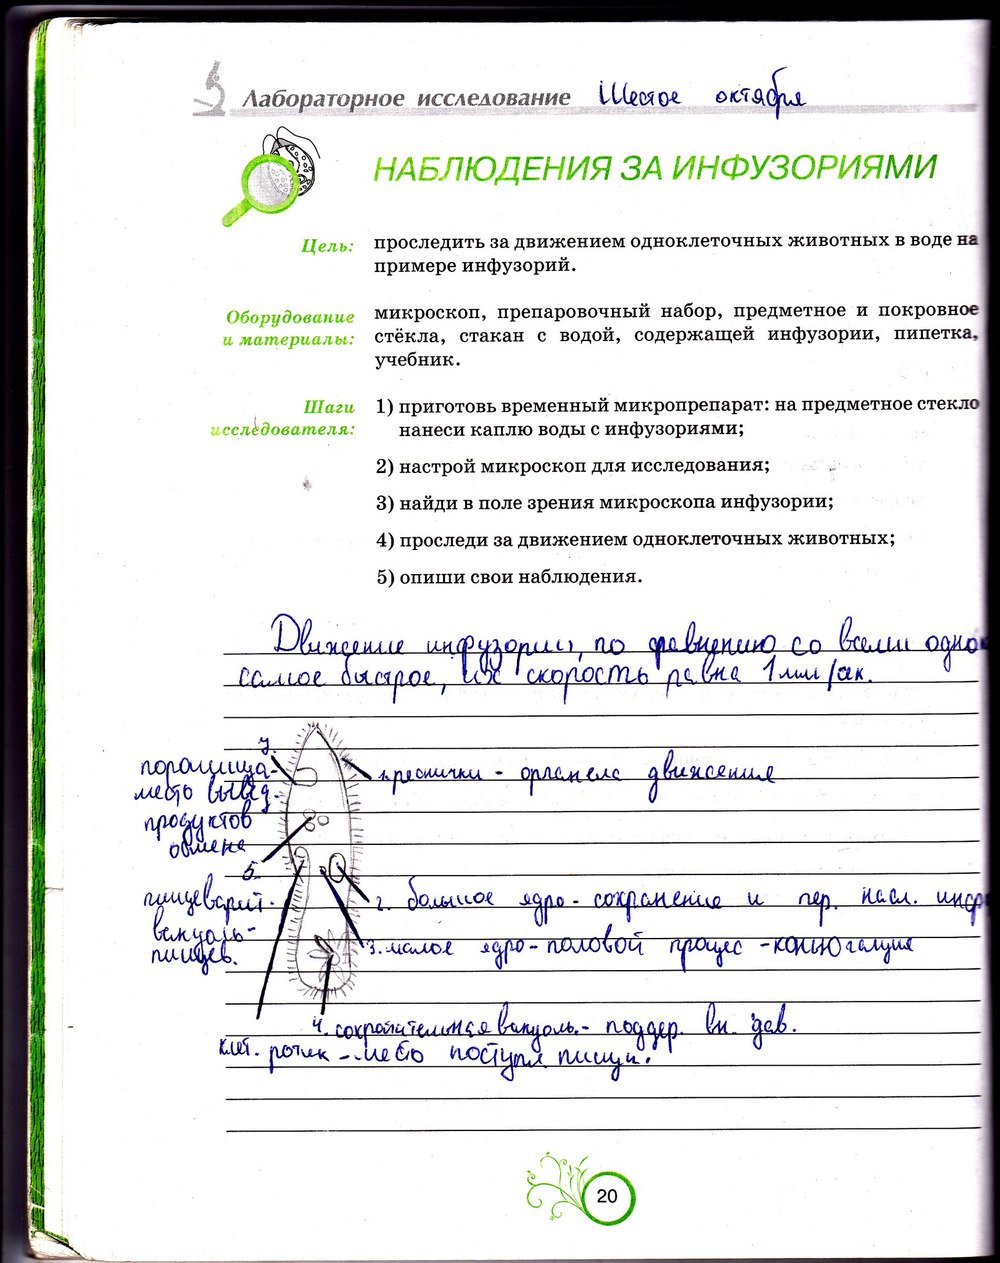 Лабораторное исследование Шестое октября
НАБЛЮДЕНИЯ ЗА ИНФУЗОРИЯМИ
Цель: проследить за движением одноклеточных животных в воде на
примере инфузорий.
Оборудование и материалы: микроскоп, препаровочный набор, предметное и покровное
стёкла, стакан с водой, содержащей инфузории, пипетка,
учебник.
Шаги исследователя: 1) приготовь временный микропрепарат: на предметное стекло
нанеси каплю воды с инфузориями;
2) настрой микроскоп для исследования;
3) найди в поле зрения микроскопа инфузории;
4) проследи за движением одноклеточных животных;
5) опиши свои наблюдения.
Движение инфузории, по сравнению со всеми однок
самое быстрое, их скорость равна 1 мм/сек.
7.
порошица-
место вывед.
продуктов
обмена
1. реснички - органела движения
5.
пищеварит.
вакуоль-
пищев.
2. большое ядро - сохранение и пер. насл. инфр
3. малое ядро - половой процес - конъюгация
4. сократительная вакуоль. - поддер. вн. дав.
клет. ротик - место поступл. пищи.
20